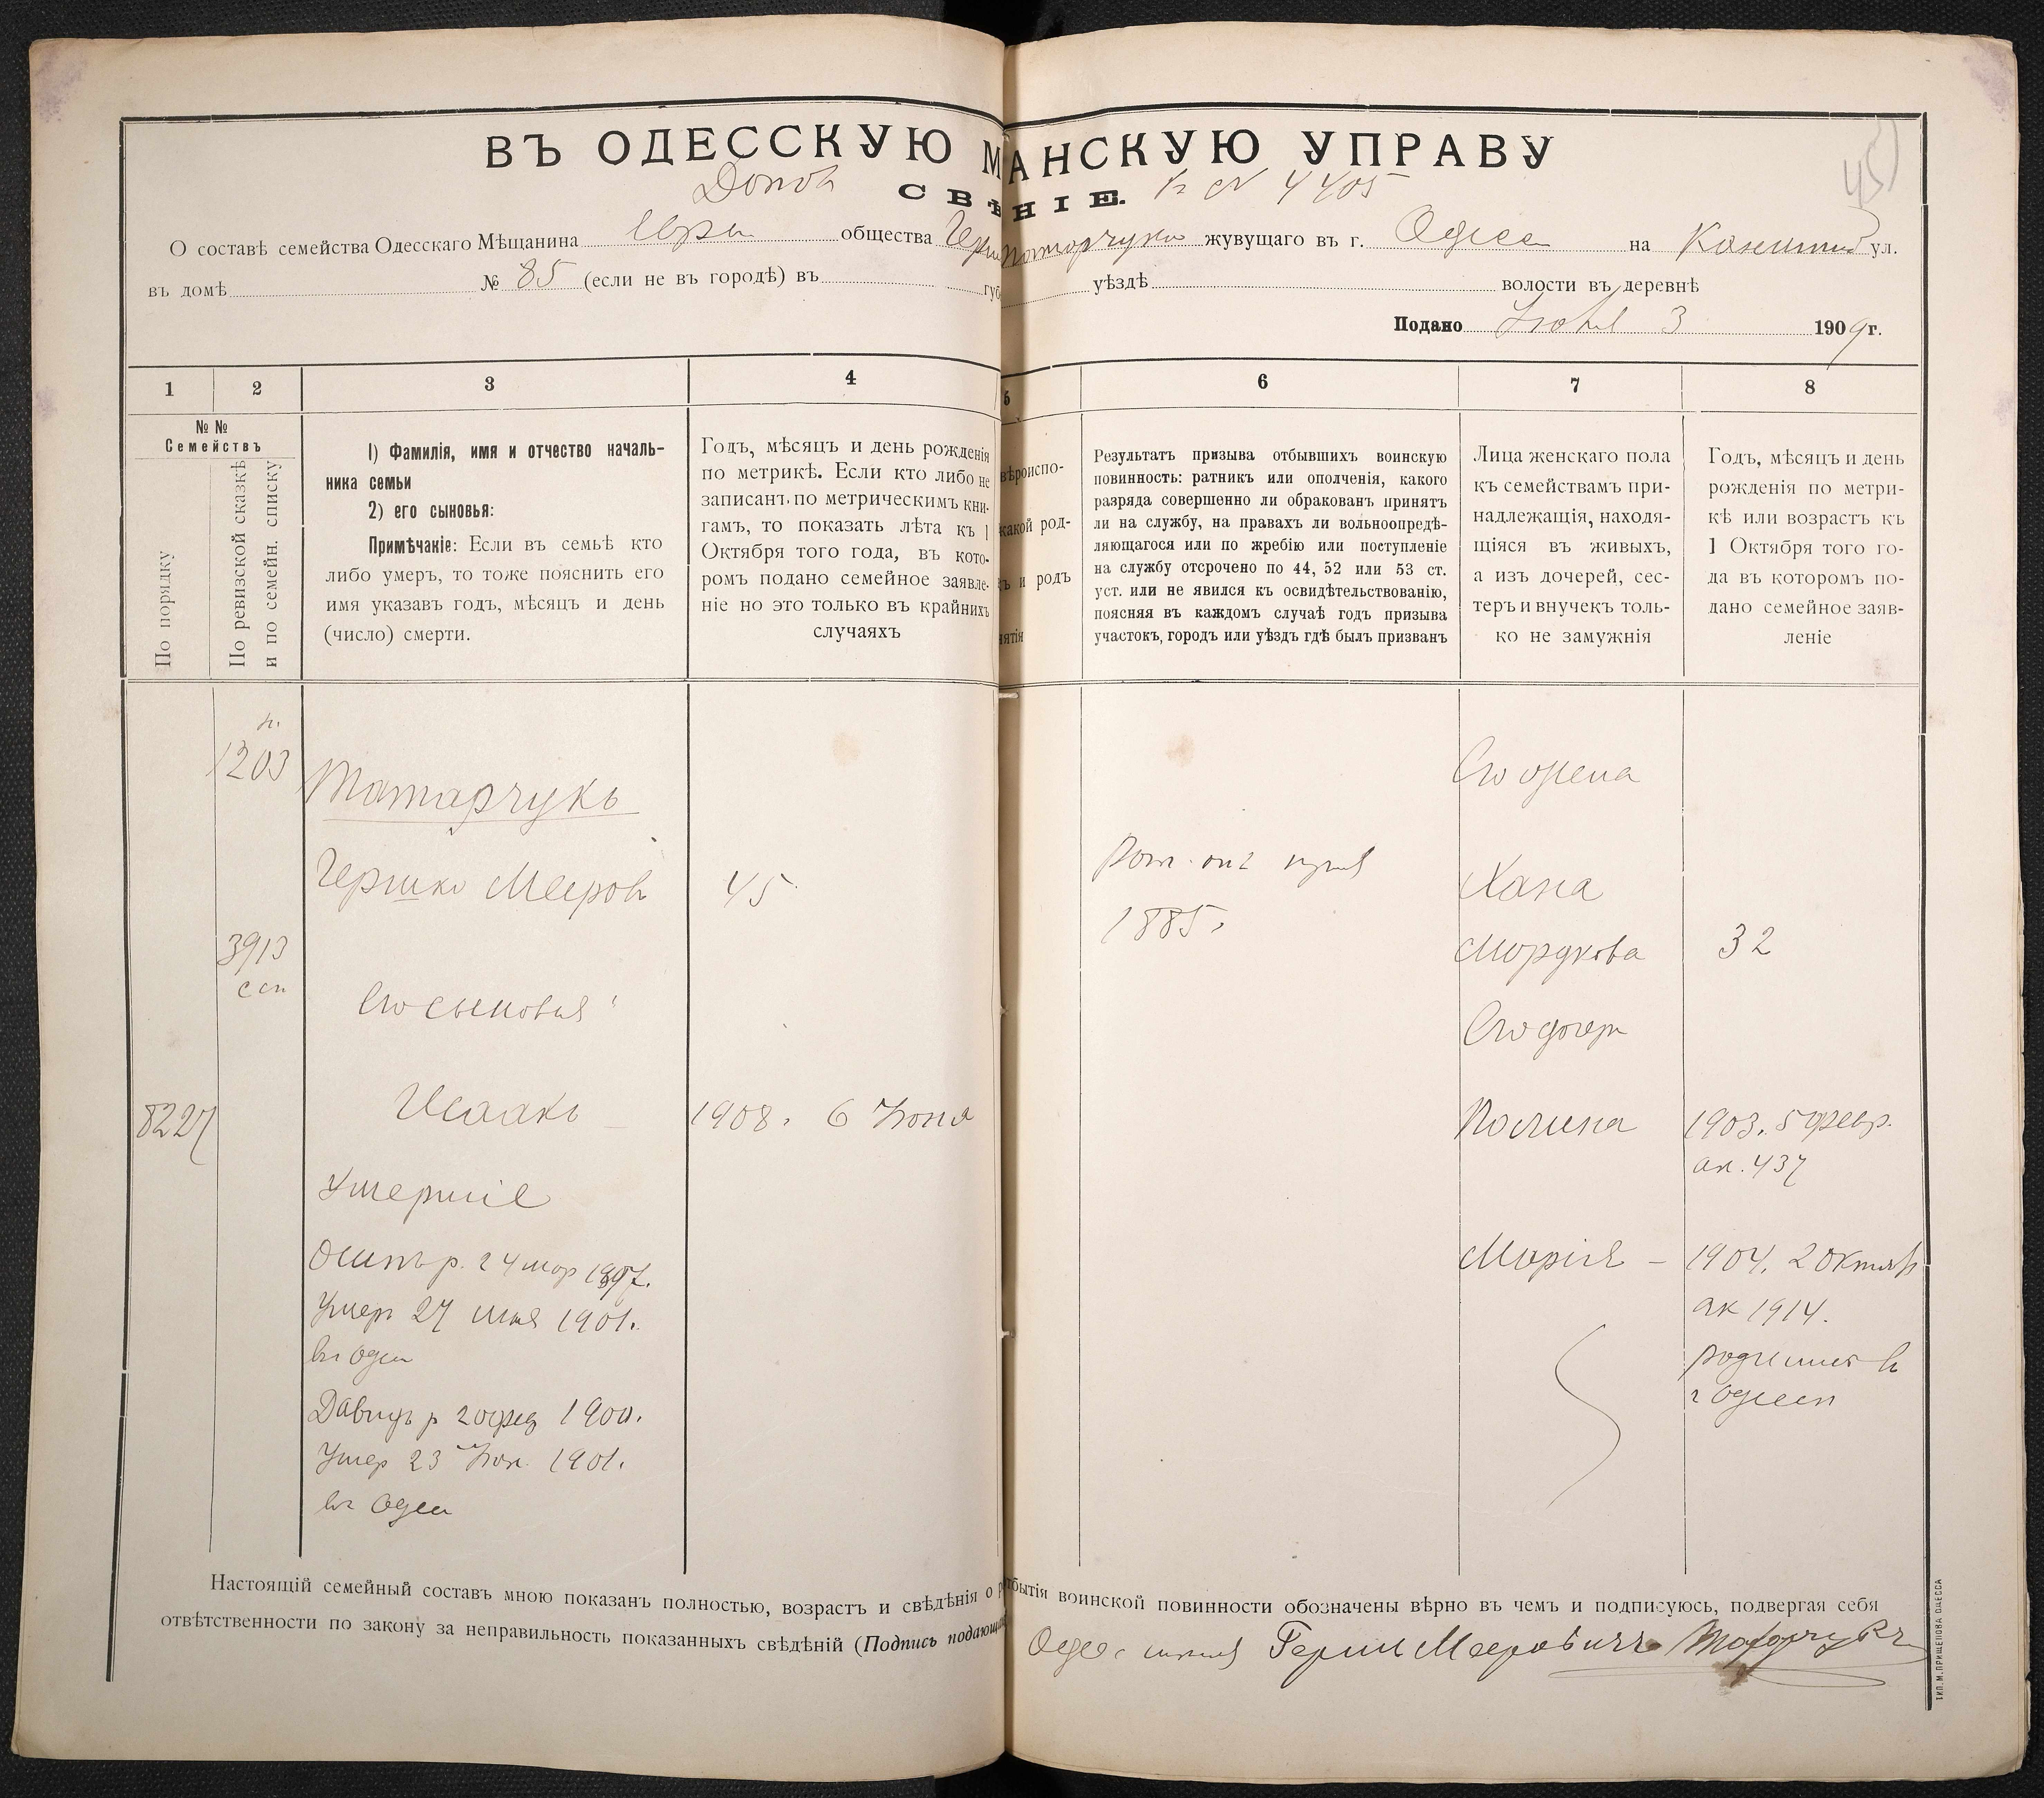 45
ВЪ ОДЕССКУЮ М АНСКУЮ УПРАВУ
Допол СВѢ НІЕ. к № 4405
О составѣ семейства Одесскаго Мѣщанина Евре общества Герш Татарчука жувущаго въ г. Одесс на ул.
въ домѣ № 85 (если не въ городѣ) въ губ уѣздѣ волости въ деревнѣ
Подано 3 1909 г.
1 2 3 4 5 6 7 8
№ №
Семействъ
По порядку
По ревизской сказкѣ
и по семейн. списку
1) Фамилія, имя и отчество началь-
ника семьи
2) его сыновья:
Примѣчаніе: Если въ семьѣ кто
либо умеръ, то тоже пояснить его
имя указавъ годъ, мѣсяцъ и день
(число) смерти.
Годъ, мѣсяцъ и день рожденія
по метрикѣ. Если кто либо не
записанъ по метрическимъ кни-
гамъ, то показать лѣта къ 1
Октября того года, въ кото-
ромъ подано семейное заявле-
ніе но это только въ крайнихъ
случаяхъ
вѣроиспо-
какой род-
ъ и родъ
нятія
Результатъ призыва отбывшихъ воинскую
повинность: ратникъ или ополченія, какого
разряда совершенно ли обракованъ принятъ
ли на службу, на правахъ ли вольноопредѣ-
ляющагося или по жребію или поступленіе
на службу отсрочено по 44, 52 или 53 ст.
уст. или не явился къ освидѣтельствованію,
поясняя въ каждомъ случаѣ годъ призыва
участокъ, городъ или уѣздъ гдѣ былъ призванъ
Лица женскаго пола
къ семействамъ при-
надлежащія, находя-
щіяся въ живыхъ,
а изъ дочерей, сес-
теръ и внучекъ толь-
ко не замужнія
Годъ, мѣсяцъ и день
рожденія по метри-
кѣ или возрастъ къ
1 Октября того го-
да въ которомъ по-
дано семейное заяв-
леніе
1203
Татарчукъ
Гершко Мееров 45
3913
ссп
Его сыновья:
8227 Исаакъ 1908. 6 Іюня
Умершіе
Осипъ р. 24 мар 1897.
Умеръ 27 мая 1901.
въ Одесс
Давидъ р 20 фев 1900.
Умер 23 Іюн. 1901.
въ Одесс
Рат. опол
1885г
Его жена
Хана
Мордкова 32
Его дочери
Полина 1903. 5 февр.
ак. 437
Марія – 1904. 2 Октяб
ак 1914.
родились в
г Одессе
Настоящій семейный составъ мною показанъ полностью, возрастъ и свѣдѣнія о р тбытія воинской повинности обозначены вѣрно въ чемъ и подписуюсь, подвергая себя
отвѣтственности по закону за неправильность показанныхъ свѣдѣній (Подпись подающ Одес Герш Мееровичъ Татарчукъ
ТИП. М. ПРИЩЕПОВА ОДЕССА